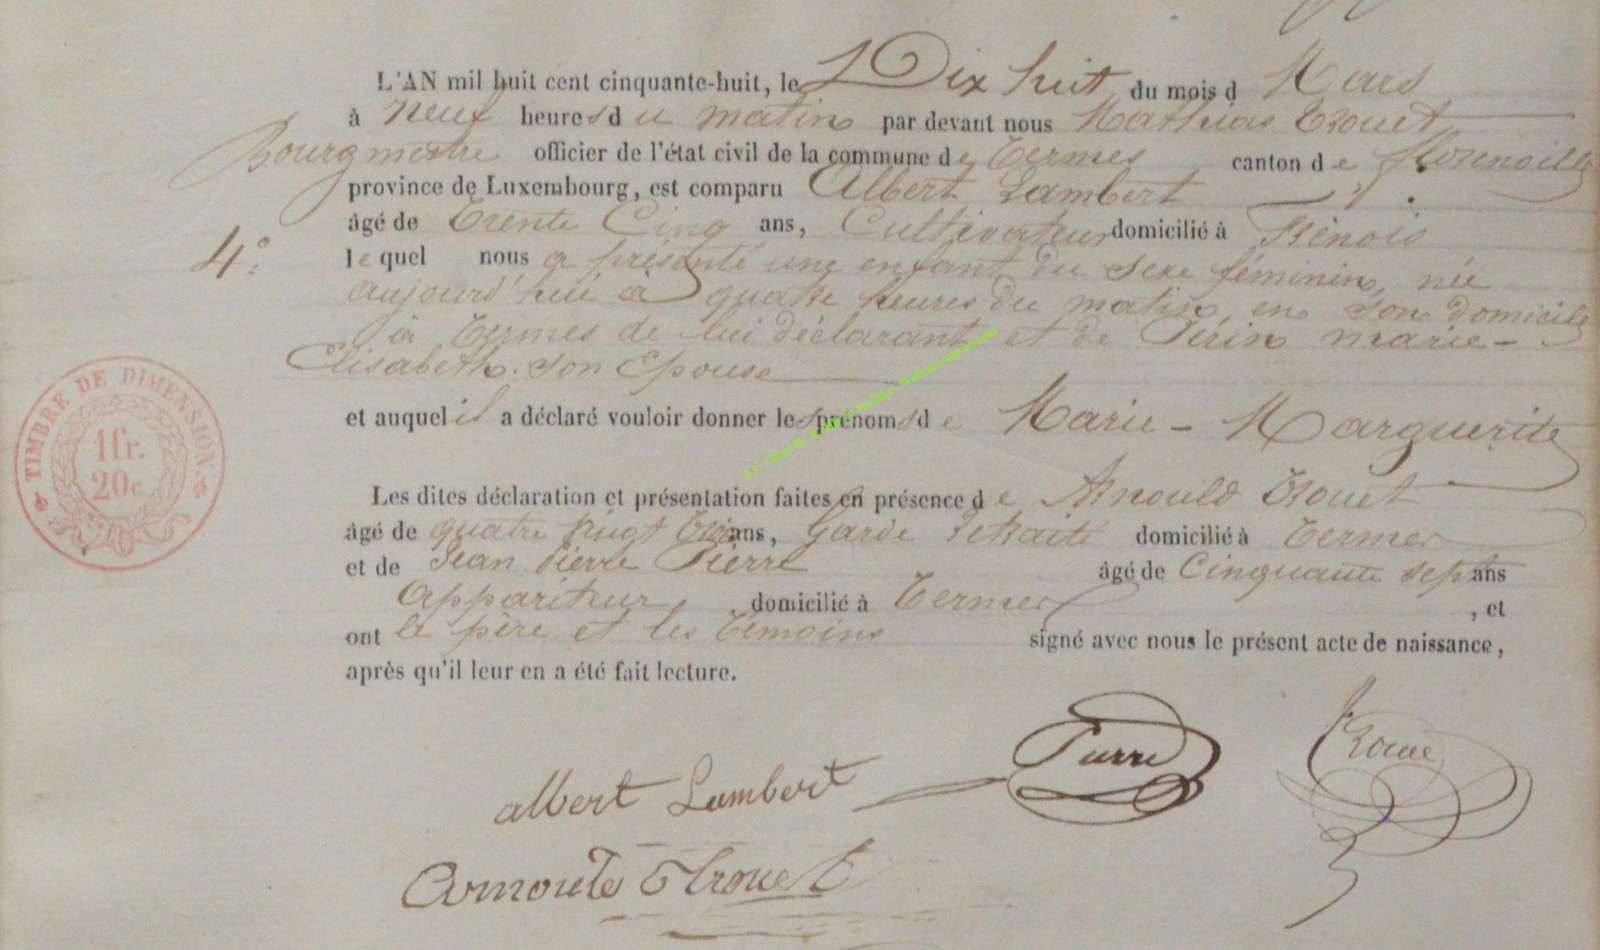 L'AN mil huit cent cinquante-huit, le Dix huit du mois d Mars
à neuf heures du matin par devant nous Mathias Trouet
Bourgmestre officier de l'état civil de la commune de Termes canton de florenville
province de Luxembourg, est comparu Albert Lambert
âgé de Trente Cinq ans, Cultivateur domicilié à Frénois
4°. lequel nous a présenté une enfant du sexe féminin, née
aujourd'hui à quatre heures du matin, en son domicile
à Termes de lui déclarant et de Pierin marie-
Elisabeth. son Epouse
et auquel il a déclaré vouloir donner les prénoms de Marie - Marguerite
Les dites déclaration et présentation faites en présence de Arnould Trouet
âgé de quatre vingt trois ans, Garde retraité domicilié à Termes
et de Jean pierre Pierre âgé de Cinquante sept ans
appariteur domicilié à Termes , et
ont le père et les témoins signé avec nous le présent acte de naissance,
après qu'il leur en a été fait lecture.
TIMBRE DE DIMENSION.
1fr.
20c.
albert Lambert
Pierre
Arnould Trouet